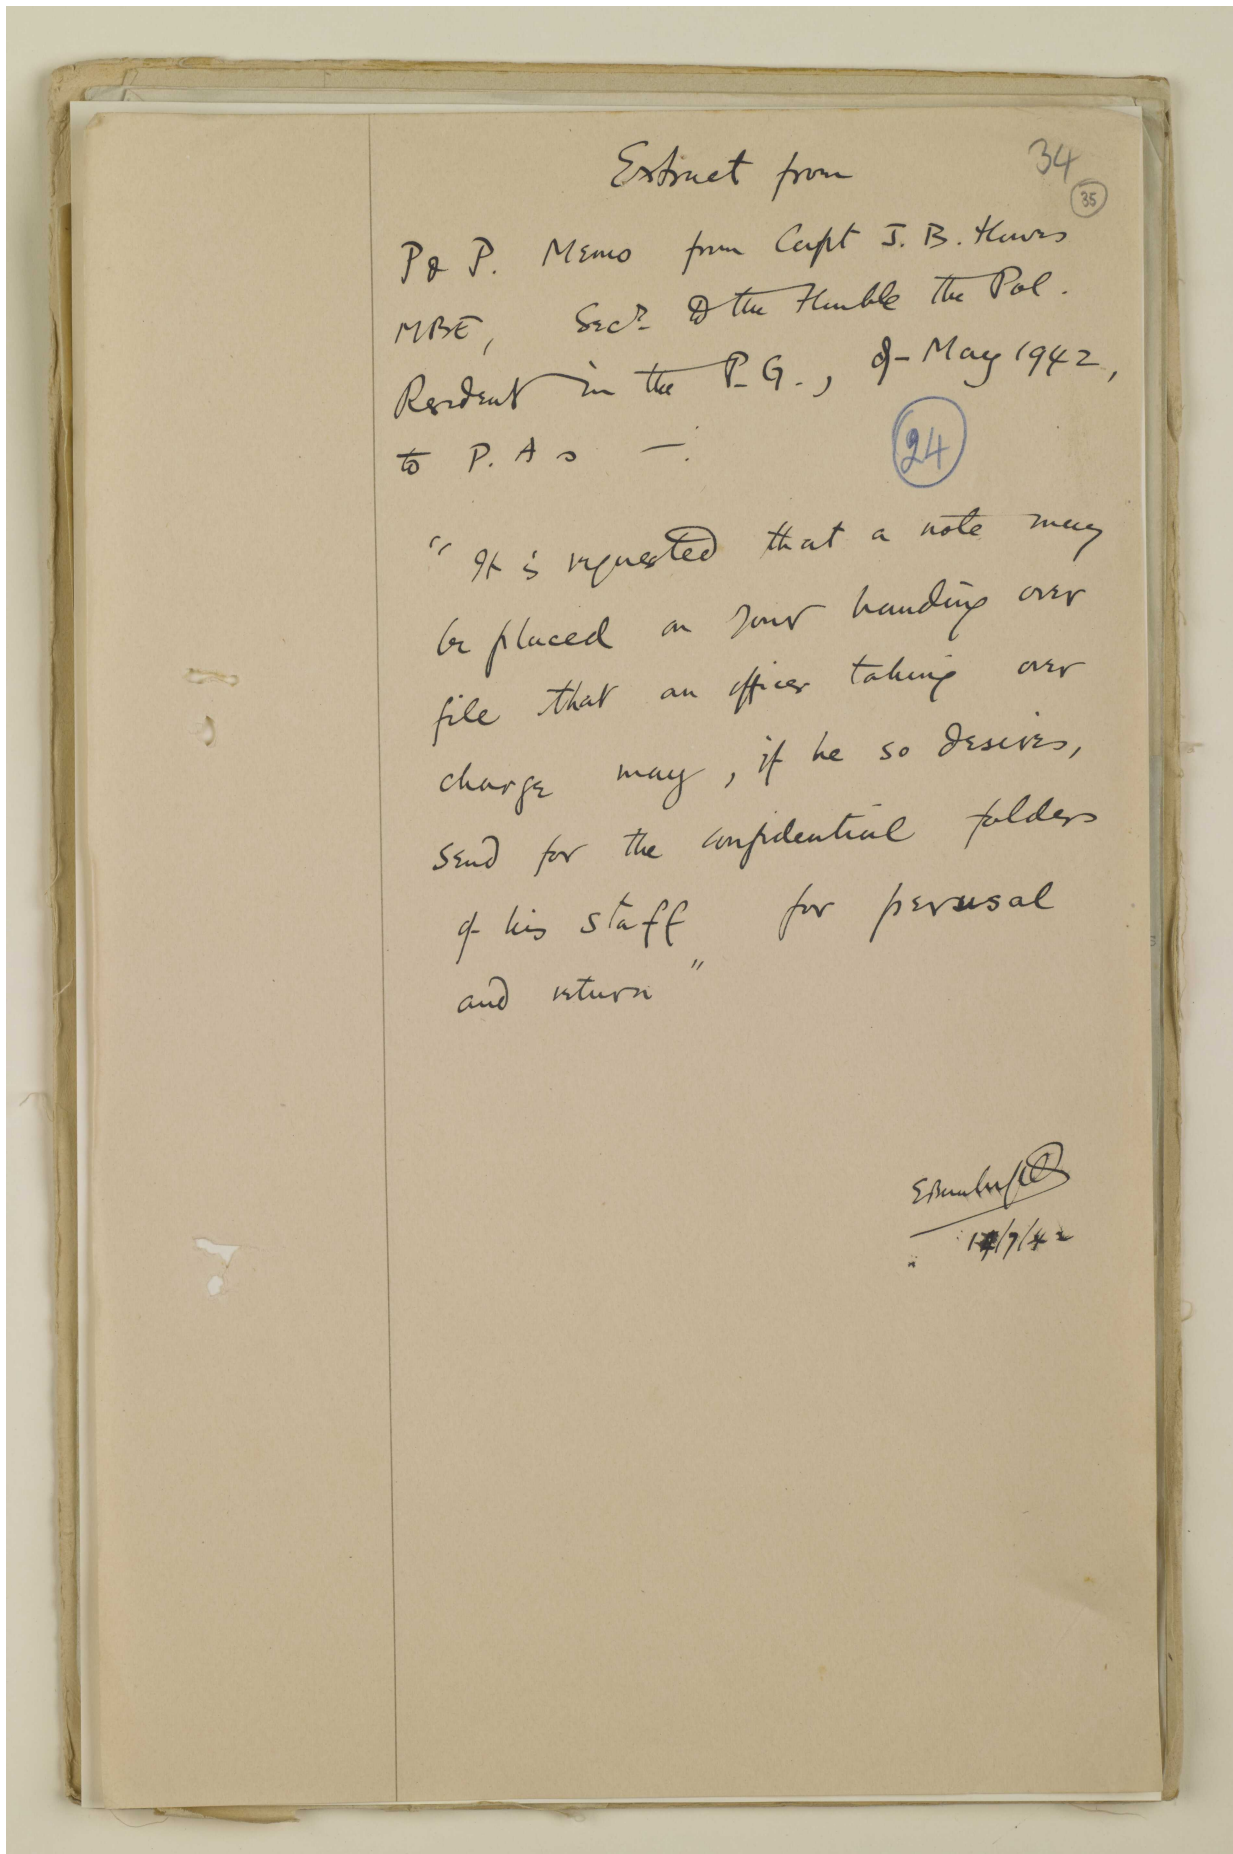 Extract from
34
35
P & P. Memo from Capt J. B. Howes
MBE, Secy. to the Honble the Pol.
Resident in the P.G., of May 1942,
to P. A s —.
24
" It is requested that a note may
be placed on your handing over
file that an officer taking over
charge may, if he so desires,
send for the confidential folders
of his staff for perusal
and return "
/7/42